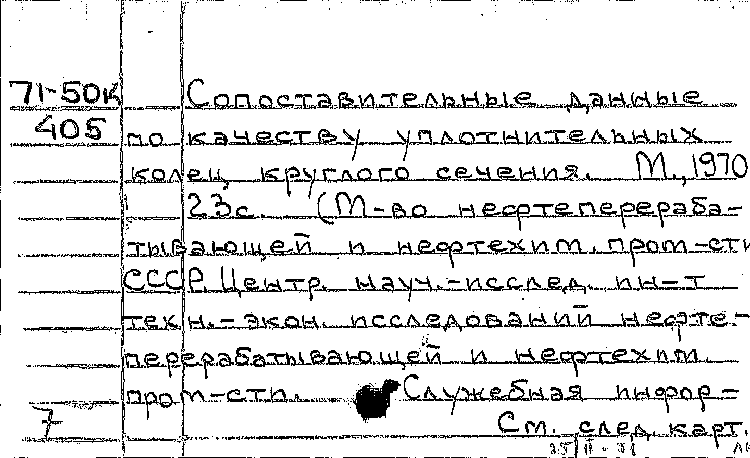 71-50к Сопоставительные данные
405 по качеству уплотнительных
колец круглого сечения. М., 1970
23с. (М-во нефтеперераба-
тывающей и нефтехим. пром-сти
СССР. Центр. науч.-исслед. ин-т
техн.-экон. исследований нефте-
перерабатывающей и нефтехим.
пром-сти. Служебная инфор-
7 См. след. карт.